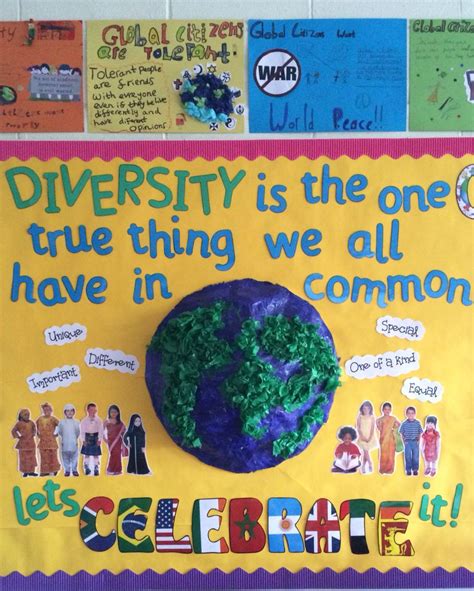 Global citizens
are TOLERANT!
Tolerant people
are friends
with everyone
even if they belive
differently and
have diffrent
opinions
Global Citizens Want
WAR
World Peace!!
Global Citizens
DIVERSITY is the one
true thing we all
have in common
Unique
Different
Important
Special
One of a Kind
Equal
lets CELEBRATE it!